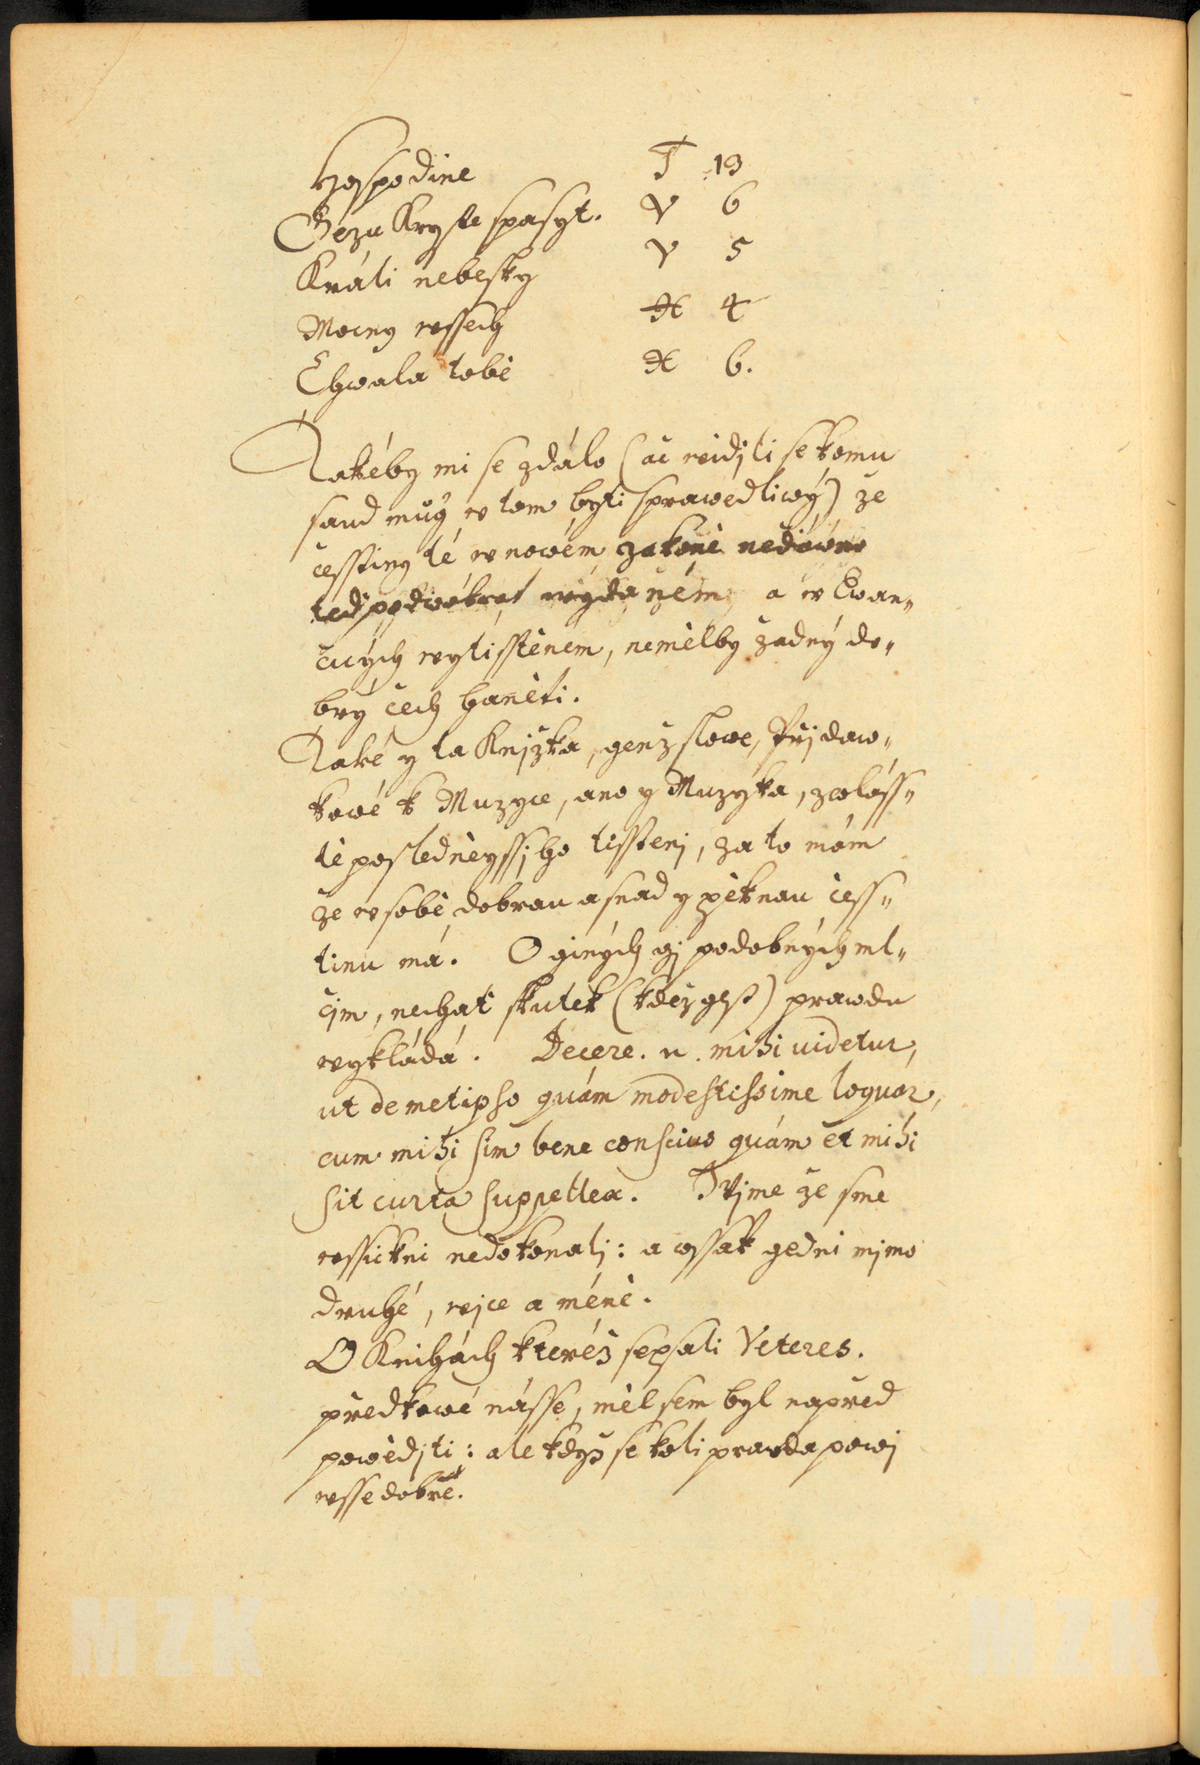 Hospodine T 13
Gezu Kryste spasyt. V 6
Králi nebesky V 5
Mocny wssech H 4
Chwala tobě H 6.
Takéby mi se zdálo (ač widjli se komu
saud můg w tom byti sprawedliwý) že
čessstiny té w nowém zakoně nedáwno
teď podwákrat wydaném a w Ewan„
čicých wytisstěnem, neměl by žadný do„
brý čech haněti.
Také y ta Knjžka, genž slowe, Přjdaw„
kowé k Muzyce, ano y Muzyka, zwlásst„
tě posledněyssjho tisstenj, za to mám
že w sobě dobrau a snad y pěknau čess„
tinu má. O giných gj podobných ml„
čjm, nechať skutek (kdež gest) prawdu
wykládá. Decere. n. mihi uidetur,
ut de metipso quám modestissime loquar,
cum mihi sim bene conscius quám et mihi
sit curta suppellex. Wjme že sme
wssickni nedokonalj: a wssak gedni mjmo
druhé, wjce a méně.
O Knihách kteréž sepsali Veteres.
předkowé násse, měl sem byl napřed
powědjti: ale když se koli prawda powj
wsse dobře.
MZK MZK